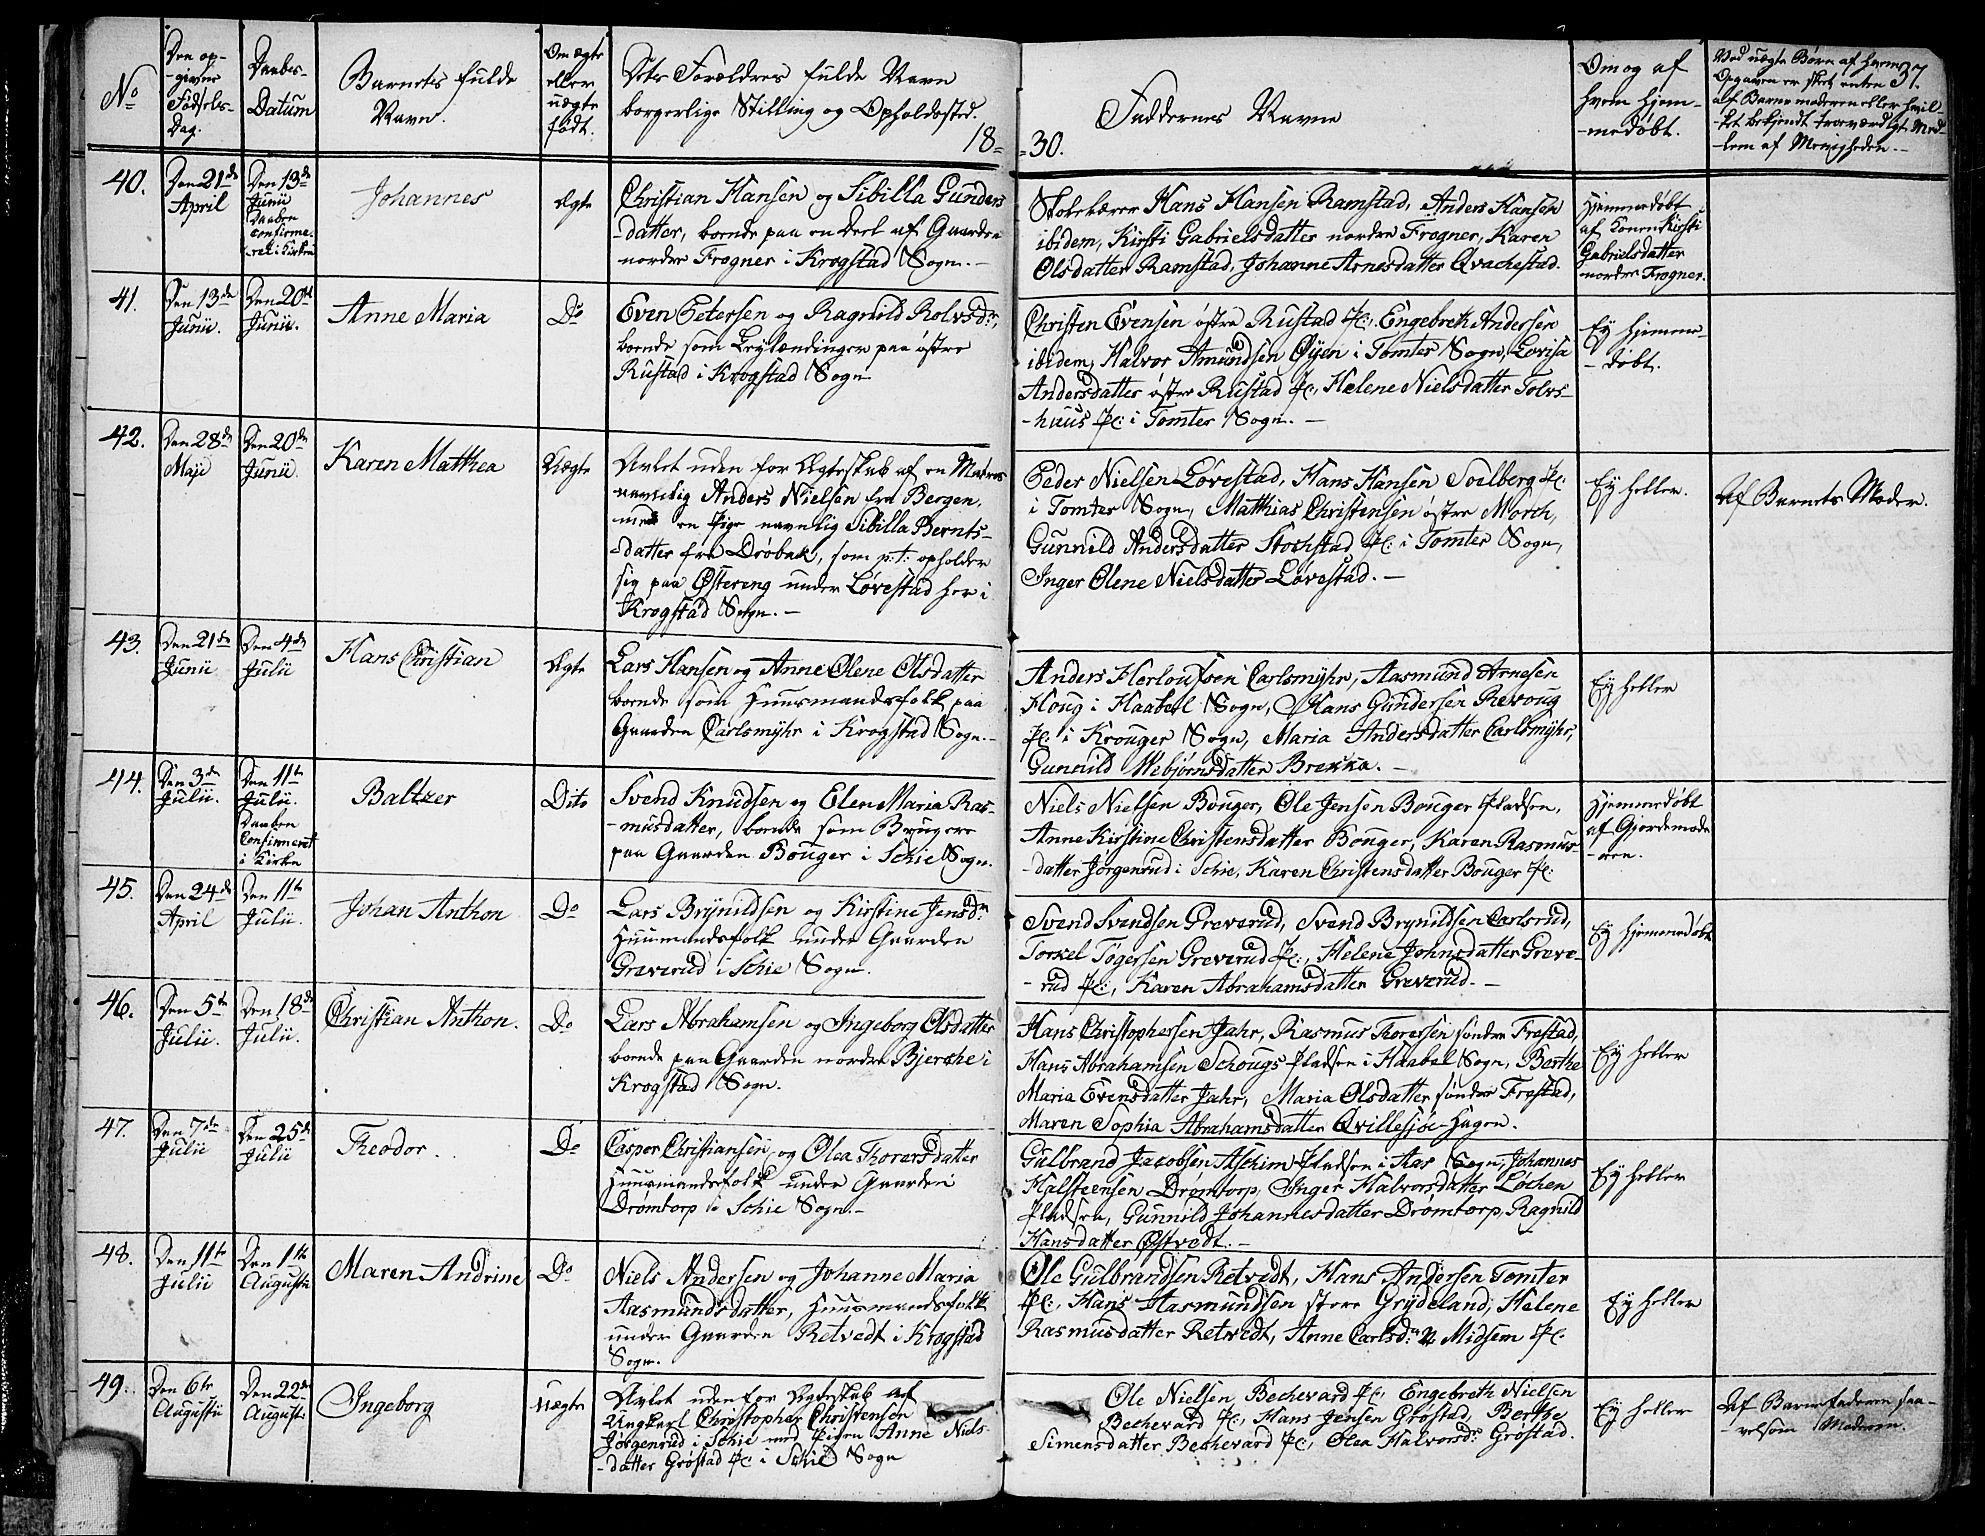 No
Den op-
-givne
Fødsels-
Dag.
Daabs-
Datum
Barnets fulde
Navn.
Om ægte
eller
uægte
født.
Dets Forældres fulde Navn
borgerlige Stilling og Opholdssted.
18=
=30.
Faddernes Navne
Om og af
hvem hjem-
-medøbt.
37.
Ved uægte Børn af hvem
Opgaven er skeet enten
af Barnemoderen eller hvil-
-ket bekjendt troværdigt Med-
-lem af Menigheden.-
40.
Den 21de
April
Den 13de
Junii
Daaben
confirme-
-ret i Kirken
Johannes
Ægte
Christian Hansen og Sibilla Gunders
-datter, boende paa en Deel af Gaarden
nordre Frogner i Krogstad Sogn.-
Skolelærer Hans Hansen Ramstad, Anders Hansen
ibidem, Kirsti Gabrielsdatter nordre Frogner, Karen
Olsdatter Ramstad, Johanne Arnesdatter Qvachestad.
Hjemmedøbt
af Konen Kirsti
Gabrielsdatter
nordre Frogner.
41.
Den 13de
Junii.
Den 20de
Junii.
Anne Maria
Do
Even Petersen og Ragnild Rolvsdr,
boende som Leylændinger paa østre
Rustad i Krogstad Sogn
Christen Evensen østre Rustad Pl:, Engebreth Andersen
ibidem, Halvor Amundsen Øijen i Tomter Sogn, Lovisa
Andersdatter østre Rustad Pl:, Helene Nielsdatter Tolvs-
-huus Pl: i Tomter Sogn.-
Ey hjemme-
-døbt.
42.
Den 28de
Maji
Den 20de
Junii.
Karen Matthea
Uægte
Avlet uden for Ægteskab af en Matros
navnlig Anders Nielsen fra Bergen,
med en Pige navnlig Sibilla Bernts-
-datter fra Drøbak, som p:t: opholder
sig paa Østereng under Løvestad her i
Krogstad Sogn.-
Peder Nielsen Løvestad, Hans Hansen Soelberg Pl:
i Tomter Sogn, Matthias Christensen østre Morch,
Gunnild Andersdatter Stochstad Pl: i Tomter Sogn,
Inger Olene Nielsdatter Løvestad.-
Ey heller.
Af Barnets Moder.
43.
Den 21de
Junii
Den 4de
Julii
Hans Christian
Ægte
Lars Hansen og Anne Olene Olsdatter
boende som Huusmandsfolk paa
Gaarden Carlsmyhr i Krogstad Sogn.-
Anders Herloufsen Carlsmyhr, Aasmund Arnesen
Houg i Haabøl Sogn, Hans Gundersen Revoug
Pl: i Krouger Sogn, Maria Andersdatter Carlsmyhr,
Gunnild Webjørnsdatter Brekka.-
Ey heller
44.
Den 3de
Julii.
Den 11te
Julii.
Daaben
Confirmeret
i Kirken
Baltzer
Dito
Svend Knudsen og Elen Maria Ras-
-musdatter, boende som Brugere
paa Gaarden Bouger i Schie Sogn.
Niels Nielsen Bouger, Ole Jensen Bouger Pladsen,
Anne Kirstine Christensdatter Bouger, Karen Rasmus-
-datter Jørgenrud i Schie, Karen Christensdatter Bouger Pl:
Hjemmedøbt
af Gjordemode
-ren.
45.
Den 24de
April
Den 11te
Julii.
Johan Anthon
Do
Lars Brynildsen og Kirstine Jensdr
Huusmandsfolk under Gaarden
Greverud i Schie Sogn.
Svend Svendsen Greverud, Svend Brynildsen Carlsrud,
Torkel Togersen Greverud Pl:, Helene Johnsdatter Greve-
-rud Pl:, Karen Abrahamsdatter Greverud.-
Ey hjemmedøbt
46.
Den 5te
Julii.
Den 18de
Julii.
Christian Anthon.
Do
Lars Abrahamsen og Ingeborg Olsdatter
boende paa Gaarden nordre Bjerche i
Krogstad Sogn.
Hans Christophersen Jahr, Rasmus Thorersen søndre Frestad,
Hans Abrahamsen Schougs Pladsen i Haabøl Sogn, Berthe
Maria Evensdatter Jahr, Maria Olsdatter søndre Frestad,
Maren Sophia Abrahamsdatter Qvillesjøe Hagen.
Ey heller
47.
Den 7de
Julii
Den 25de
Julii
Theodor.
Do
Casper Christiansen og Olea Thorersdatter
Huusmandsfolk under Gaarden
Drømtorp i Schie Sogn.-
Gulbrand Jacobsen Aschim Pladsen i Aas Sogn, Johannes
Halsteensen Drømtorp, Inger Halvorsdatter Løchen
Pladsen, Gunnild Johannesdatter Drømtorp, Ragnild
Hansdatter Østvedt.-
Ey heller
48.
Den 11te
Julii
Den 1te
Augustii
Maren Andrine
Do
Niels Andersen og Johanne Maria
Aasmundsdatter, Huusmandsfolk
under Gaarden Retvedt i Krogstad
Sogn.
Ole Gulbrandsen Retvedt, Hans Andersen Tomter
Pl:, Hans Aasmundsen store Grydeland, Helene
Rasmusdatter Retvedt, Anne Carlsdr N: Midsem Pl:
Ey heller
49.
Den 6te
Augustii
Den 22de
August:
Ingeborg
Uægte
Avlet uden for Ægteskab af
Ungkarl Christopher Christensen
Jørgenrud i Schie med Pigen Anne Niels-
-datter Grøstad Pl: i Schie Sogn
Ole Nielsen Bechevard Pl: Engebreth Nielsen
Bechevard Pl:, Hans Jensen Grøstad, Berthe
Simensdatter Bechevard Pl:, Olea Halvorsdr Grøstad.
Ey heller
Af Barnefaderen saa-
-velsom Moderen.